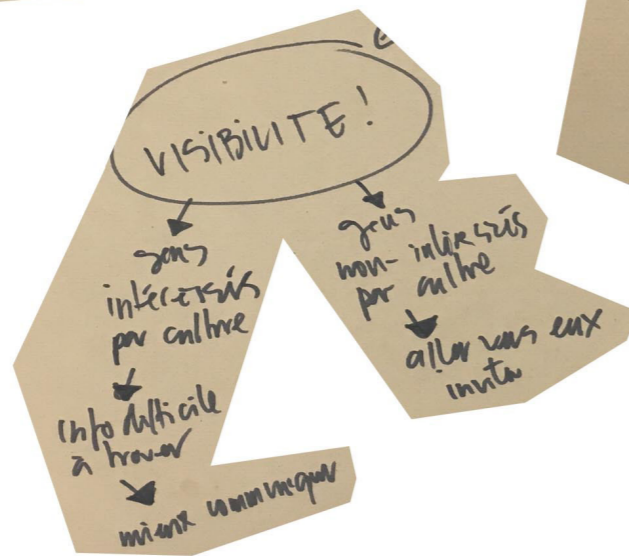 VISIBILITE!
gens
intéressés
par culture
info difficile
à trouver
mieux communiquer
gens
non-intéressés
par culture
aller vers eux
inviter